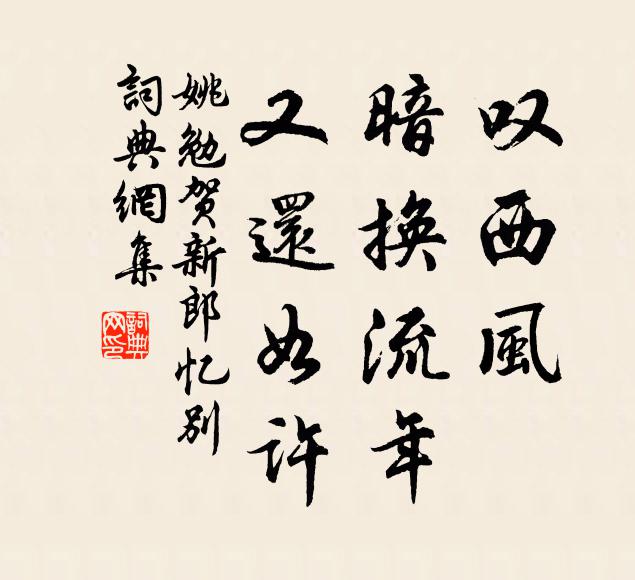 叹西風
暗換流年
又還如许
姚勉贺新郎忆别
詞典網集
詞典网印